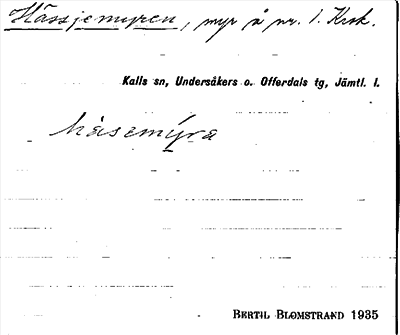 Hässjemyren, myr å nr. 1. Krok.
Kalls sn, Undersåkers o. Offerdals tg, Jämtl. l.
hàsemýra
BERTIL BLOMSTRAND 1935